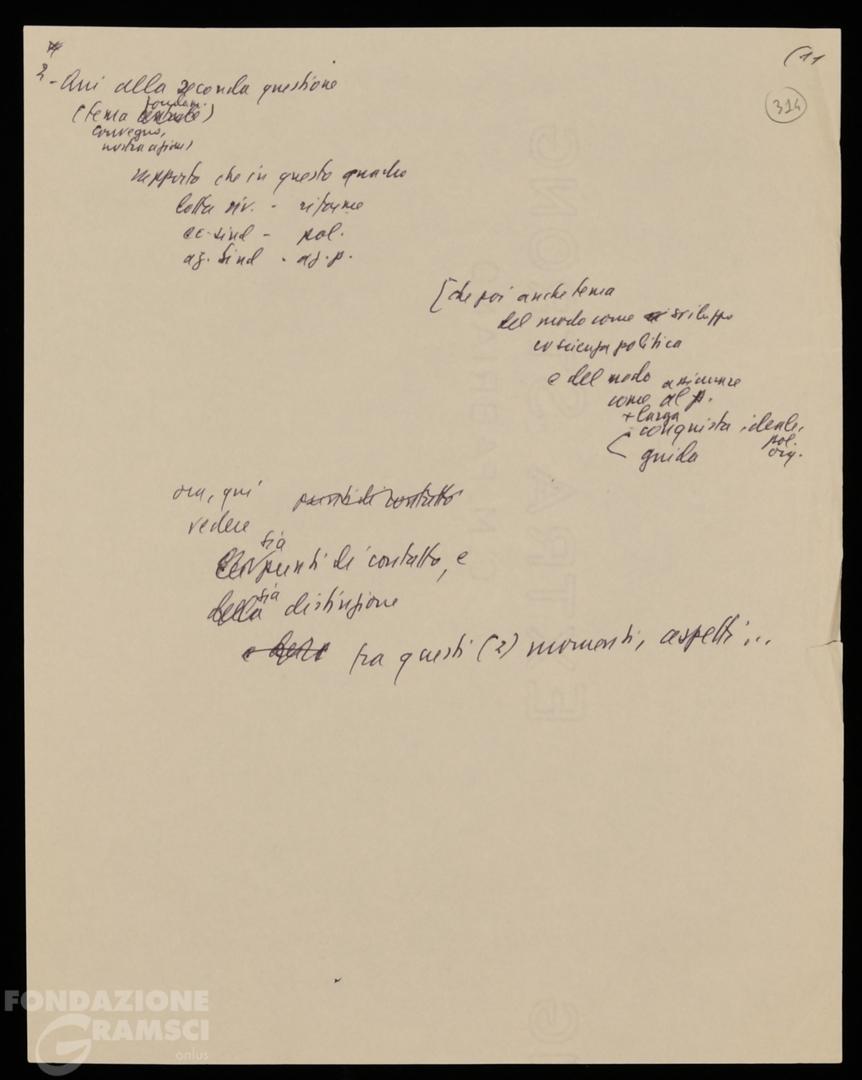 (11
314
2 - Qui alla seconda questione
fondam.
(tema centrale)
convegno,
nostra azione)
rapporto che in questo quadro
lotta riv. - riforme
ec-sind - pol.
az. sind - az. p.
[che poi anche tema
del modo come si sviluppa
coscienza politica
e del modo assicurare
come al p.
+ larga
conquista ideale,
pol.
guida org.
ora, qui punti di contatto
vedere
sia
punti di contatto, e
della sia distinzione
e della tra questi (2) momenti, aspetti...
FONDAZIONE
GRAMSCI
onlus